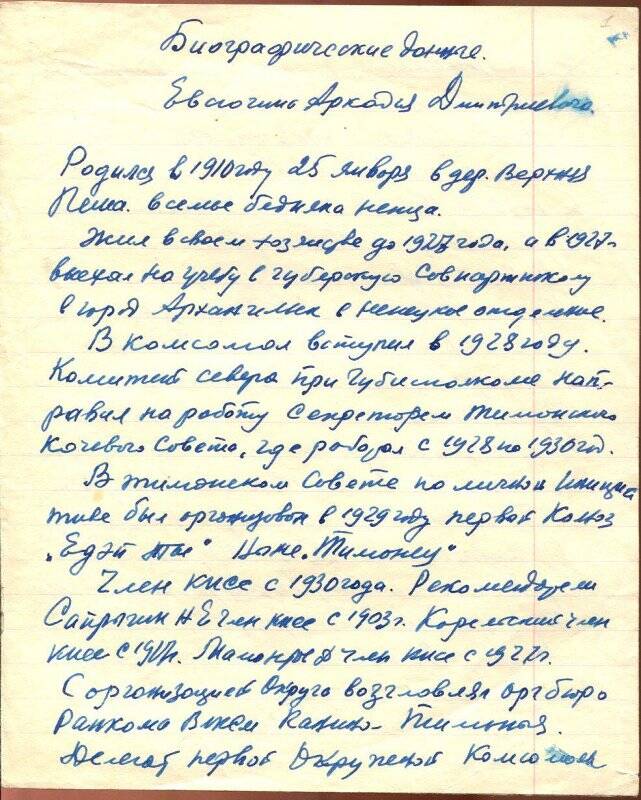 1
Биографические данные.
Евсюгина Аркадия Дмитриевича.
Родился в 1910 году 25 января в дер. Верхняя
Пеша. в семье бедняка ненца.
Жил в своем хозяйстве до 1927 года, а в 1927-
выехал на учебу в Губерскую Совпартшколу
в город Архангельск в ненецкое отделение.
В комсомол вступил в 1928 году.
Комитет севера при Губисполкоме нап-
равил на работу Секретарем Тиманского
Кочевого Совета, где работал с 1928 по 1930 год.
В Тиманском Совете по личной инициа
тиве был организован в 1929 году первый Колхоз
„Едэй Ты" Ныне „Тиманец"
Член КПСС с 1930 года. Рекомендовали
Сапрыгин Н Е член КПСС с 1903 г. Корельский член
КПСС с 1917 г. член КПСС с 1927 г.
С организацией Округа возглавлял оргбюро
Райкома ВЛКСМ Канино-Тиманья.
Делегат первой Окружной Комсомол